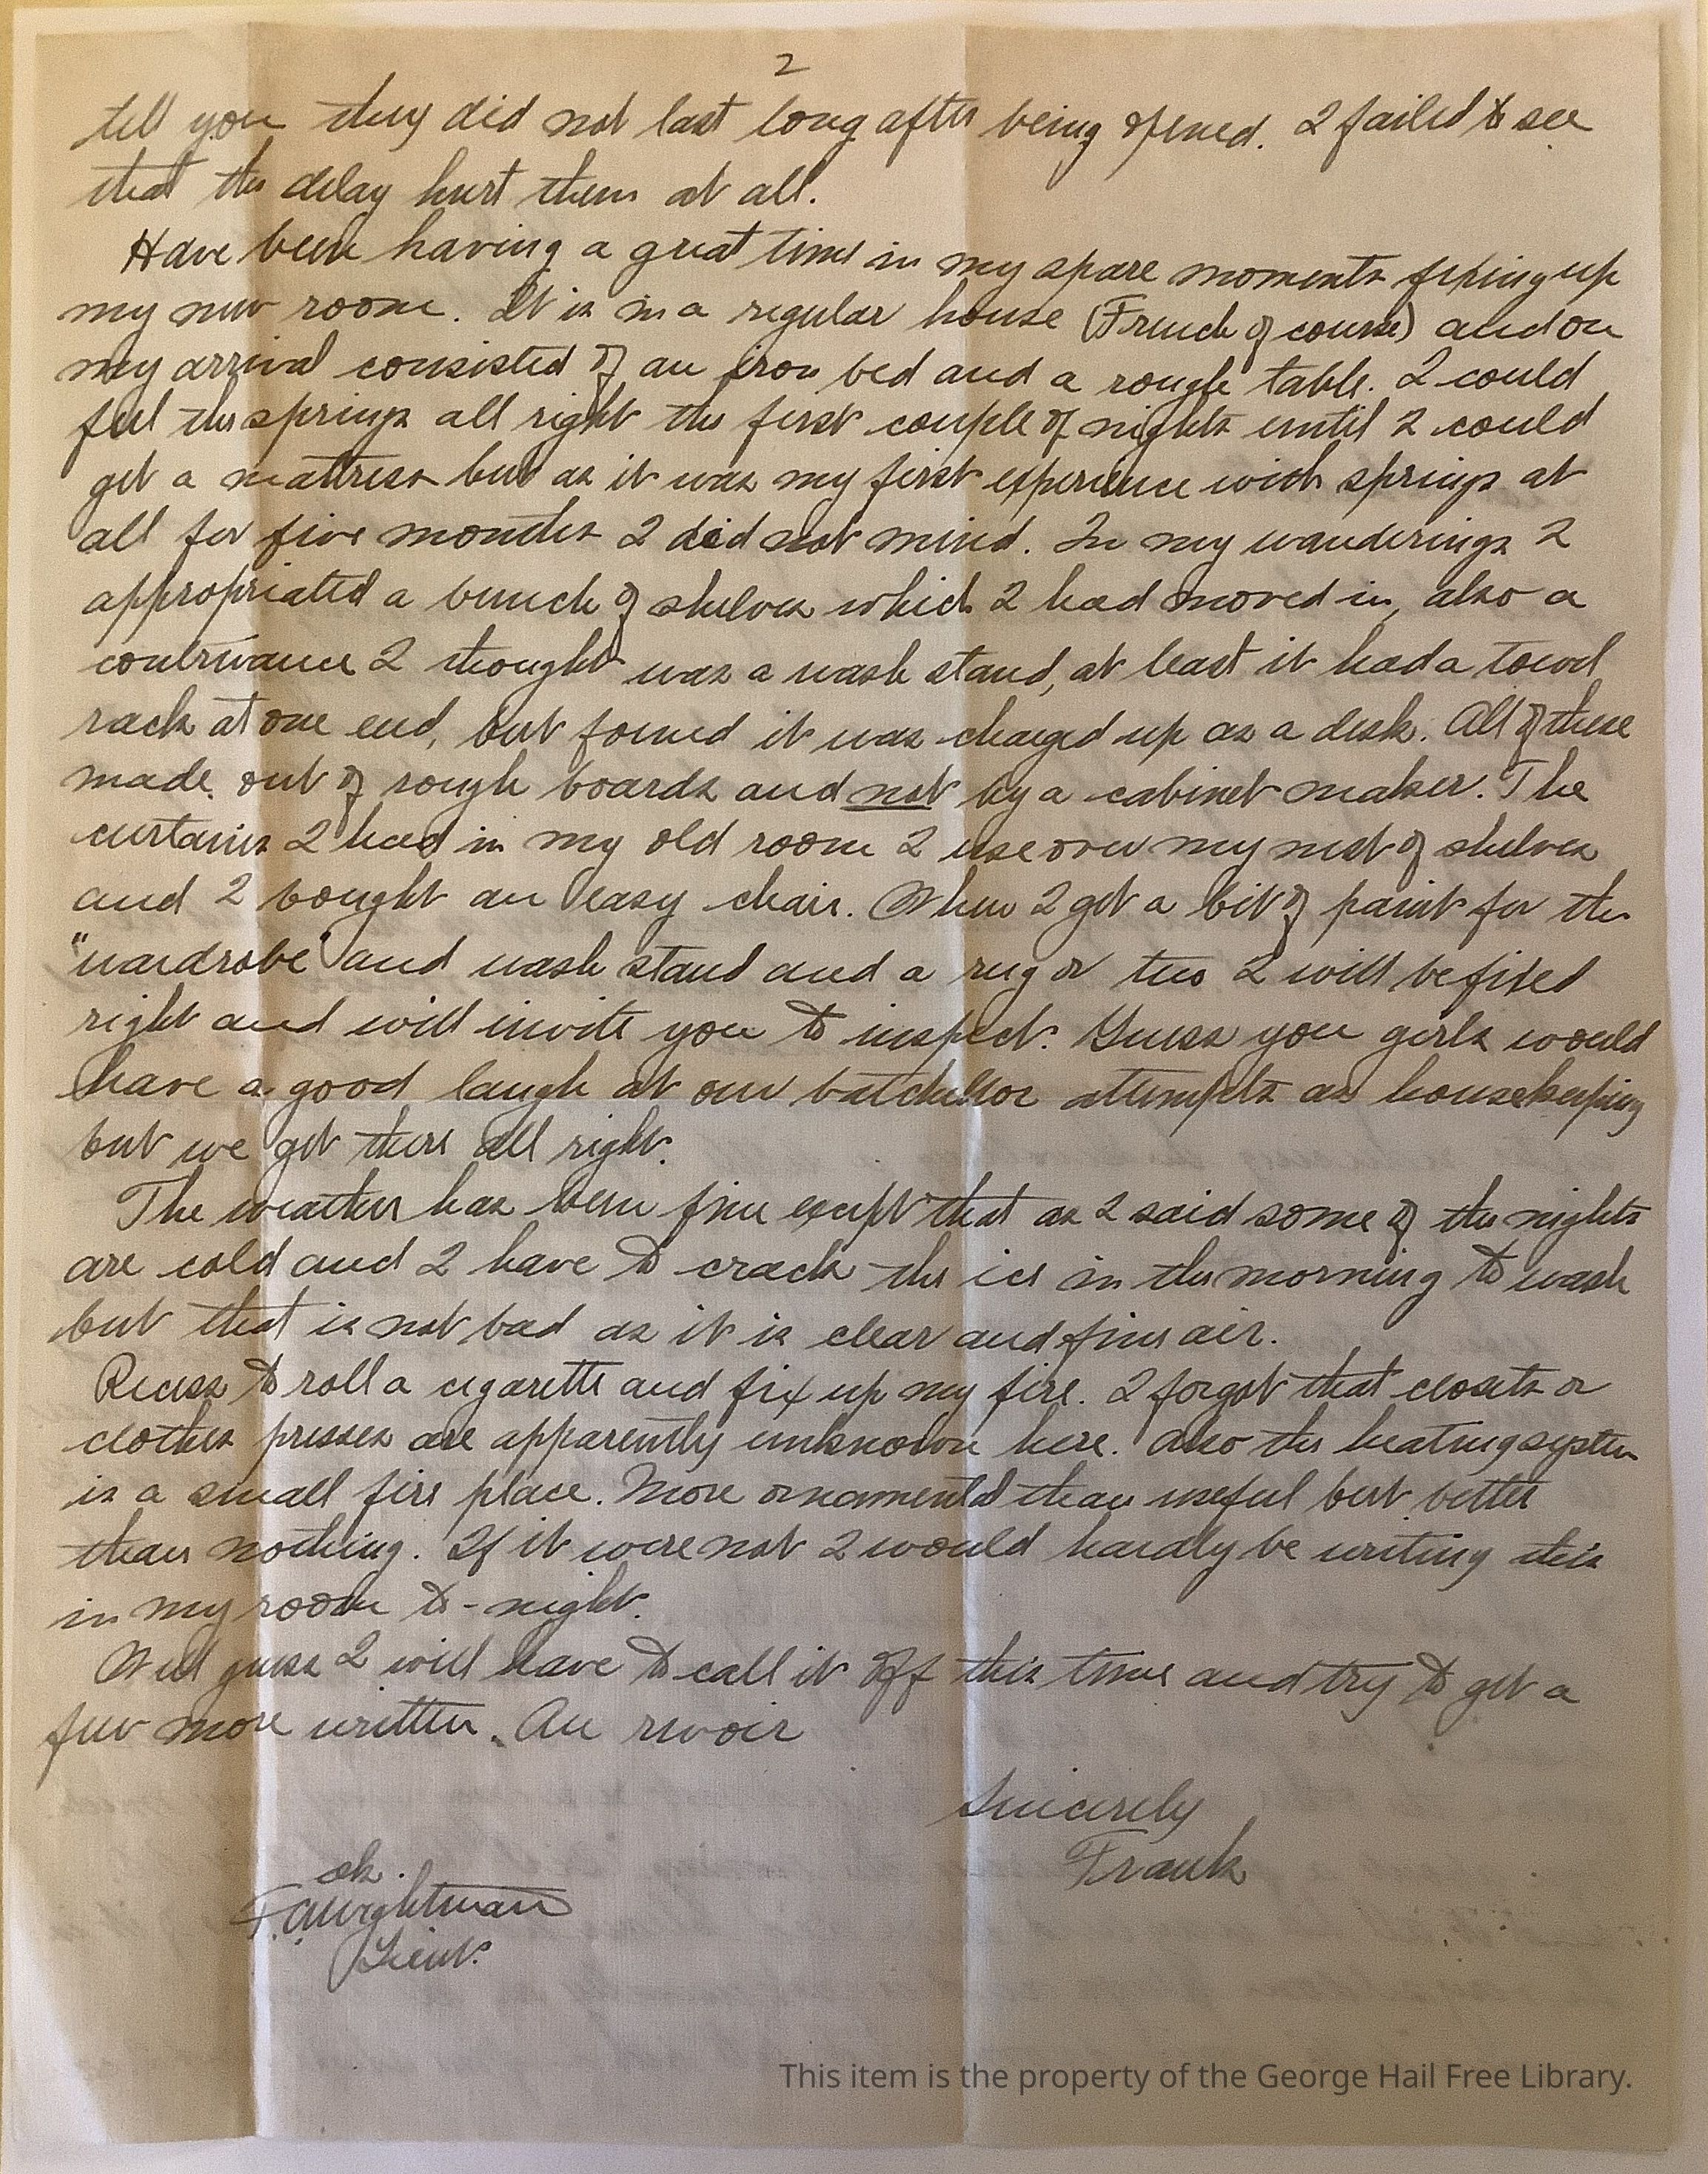 2
tell you they did not last long after being opened. I failed to see
that the delay hurt them at all.
Have been having a great time in my spare moments fixing up
my new room. It is in a regular house (French of course) and on
my arrival consisted of an iron bed and a rough table. I could
feel the springs all right the first couple of nights until I could
get a mattress but as it was my first experience with springs at
all for five months I did not mind. In my wanderings I
appropriated a bunch of shelves which I had moved in, also a
contrivance I thought was a wash stand, at least it had a towel
rack at one end, but found it was charged up as a desk. All of these
made out of rough boards and not by a cabinet maker. The
curtains I had in my old room I use over my nest of shelves
and I bought an easy chair. When I get a bit of paint for the
"wardrobe" and wash stand and a rug or two I will be fixed
right and will invite you to inspect. Guess you girls would
have a good laugh at our batchellor attempts as housekeeping
but we get there all right.
The weather has been fine except that as I said some of the nights
are cold and I have to crack the ice in the morning to wash
but that is not bad as it is clear and fine air.
Recess to roll a cigarette and fix up my fire. I forgot that closets or
clothes presses are apparently unknown here. Also the heating system
is a small fire place. More ornamental than useful but better
than nothing. If it were not I would hardly be writing this
in my room to-night.
Well guess I will have to call it off this time and try to get a
few more written. Au revoir
Sincerely
Frank
ok.
F. A. Wightman
Lieut.
This item is the property of the George Hail Free Library.